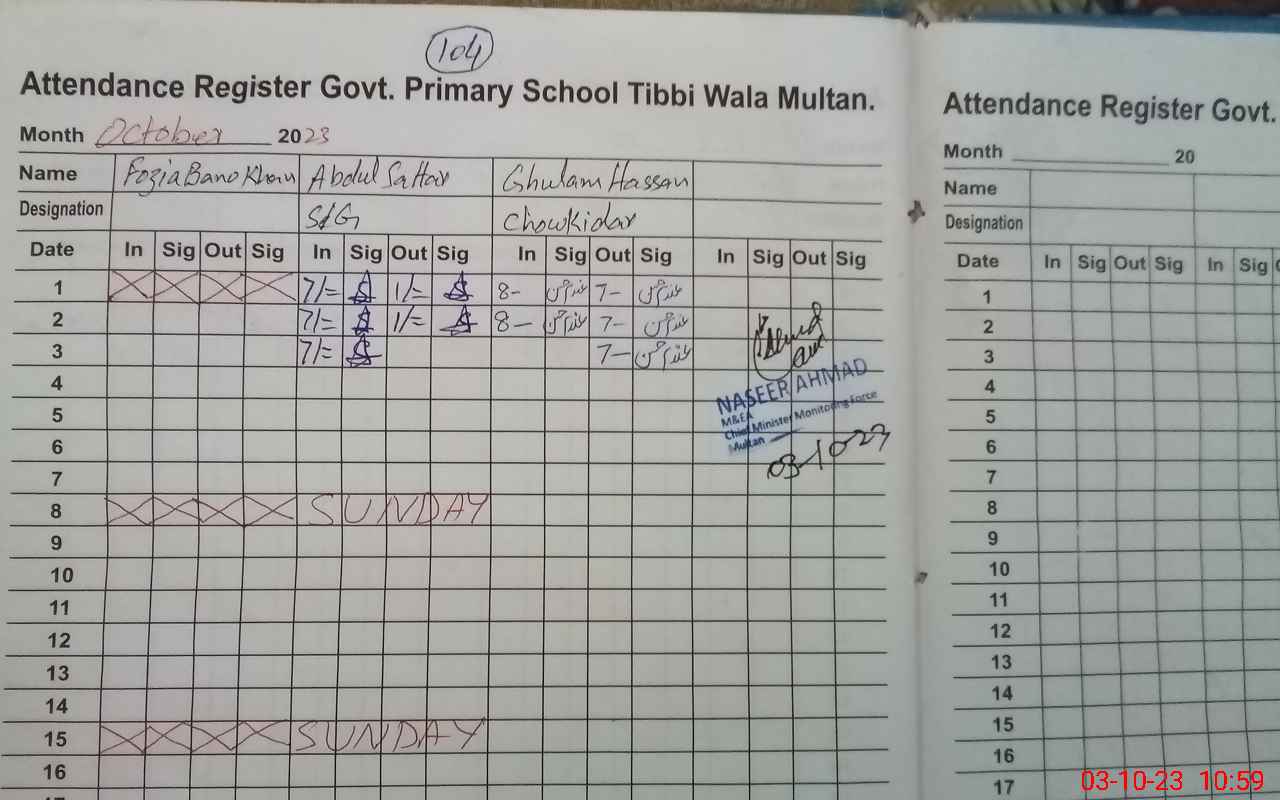 104
Attendance Register Govt. Primary School Tibbi Wala Multan.
Month October 2023
Name Fozia Bano Khan Abdul Sattar Ghulam Hassan
Designation S/G Chowkidar
Date In Sig Out Sig In Sig Out Sig In Sig Out Sig In Sig Out Sig
1 7/= 1/= 8- 7-
2 7/= 1/= 8- 7-
3 7/= 7-
4
5
6
7
8 SUNDAY
9
10
11
12
13
14
15 SUNDAY
16
NASEER AHMAD
M&EA
Chief Minister Monitoring Force
Multan
03-10-23
Attendance Register Govt.
Month 20
Name
Designation
Date In Sig Out Sig In Sig
1
2
3
4
5
6
7
8
9
10
11
12
13
14
15
16
17
03-10-23 10:59